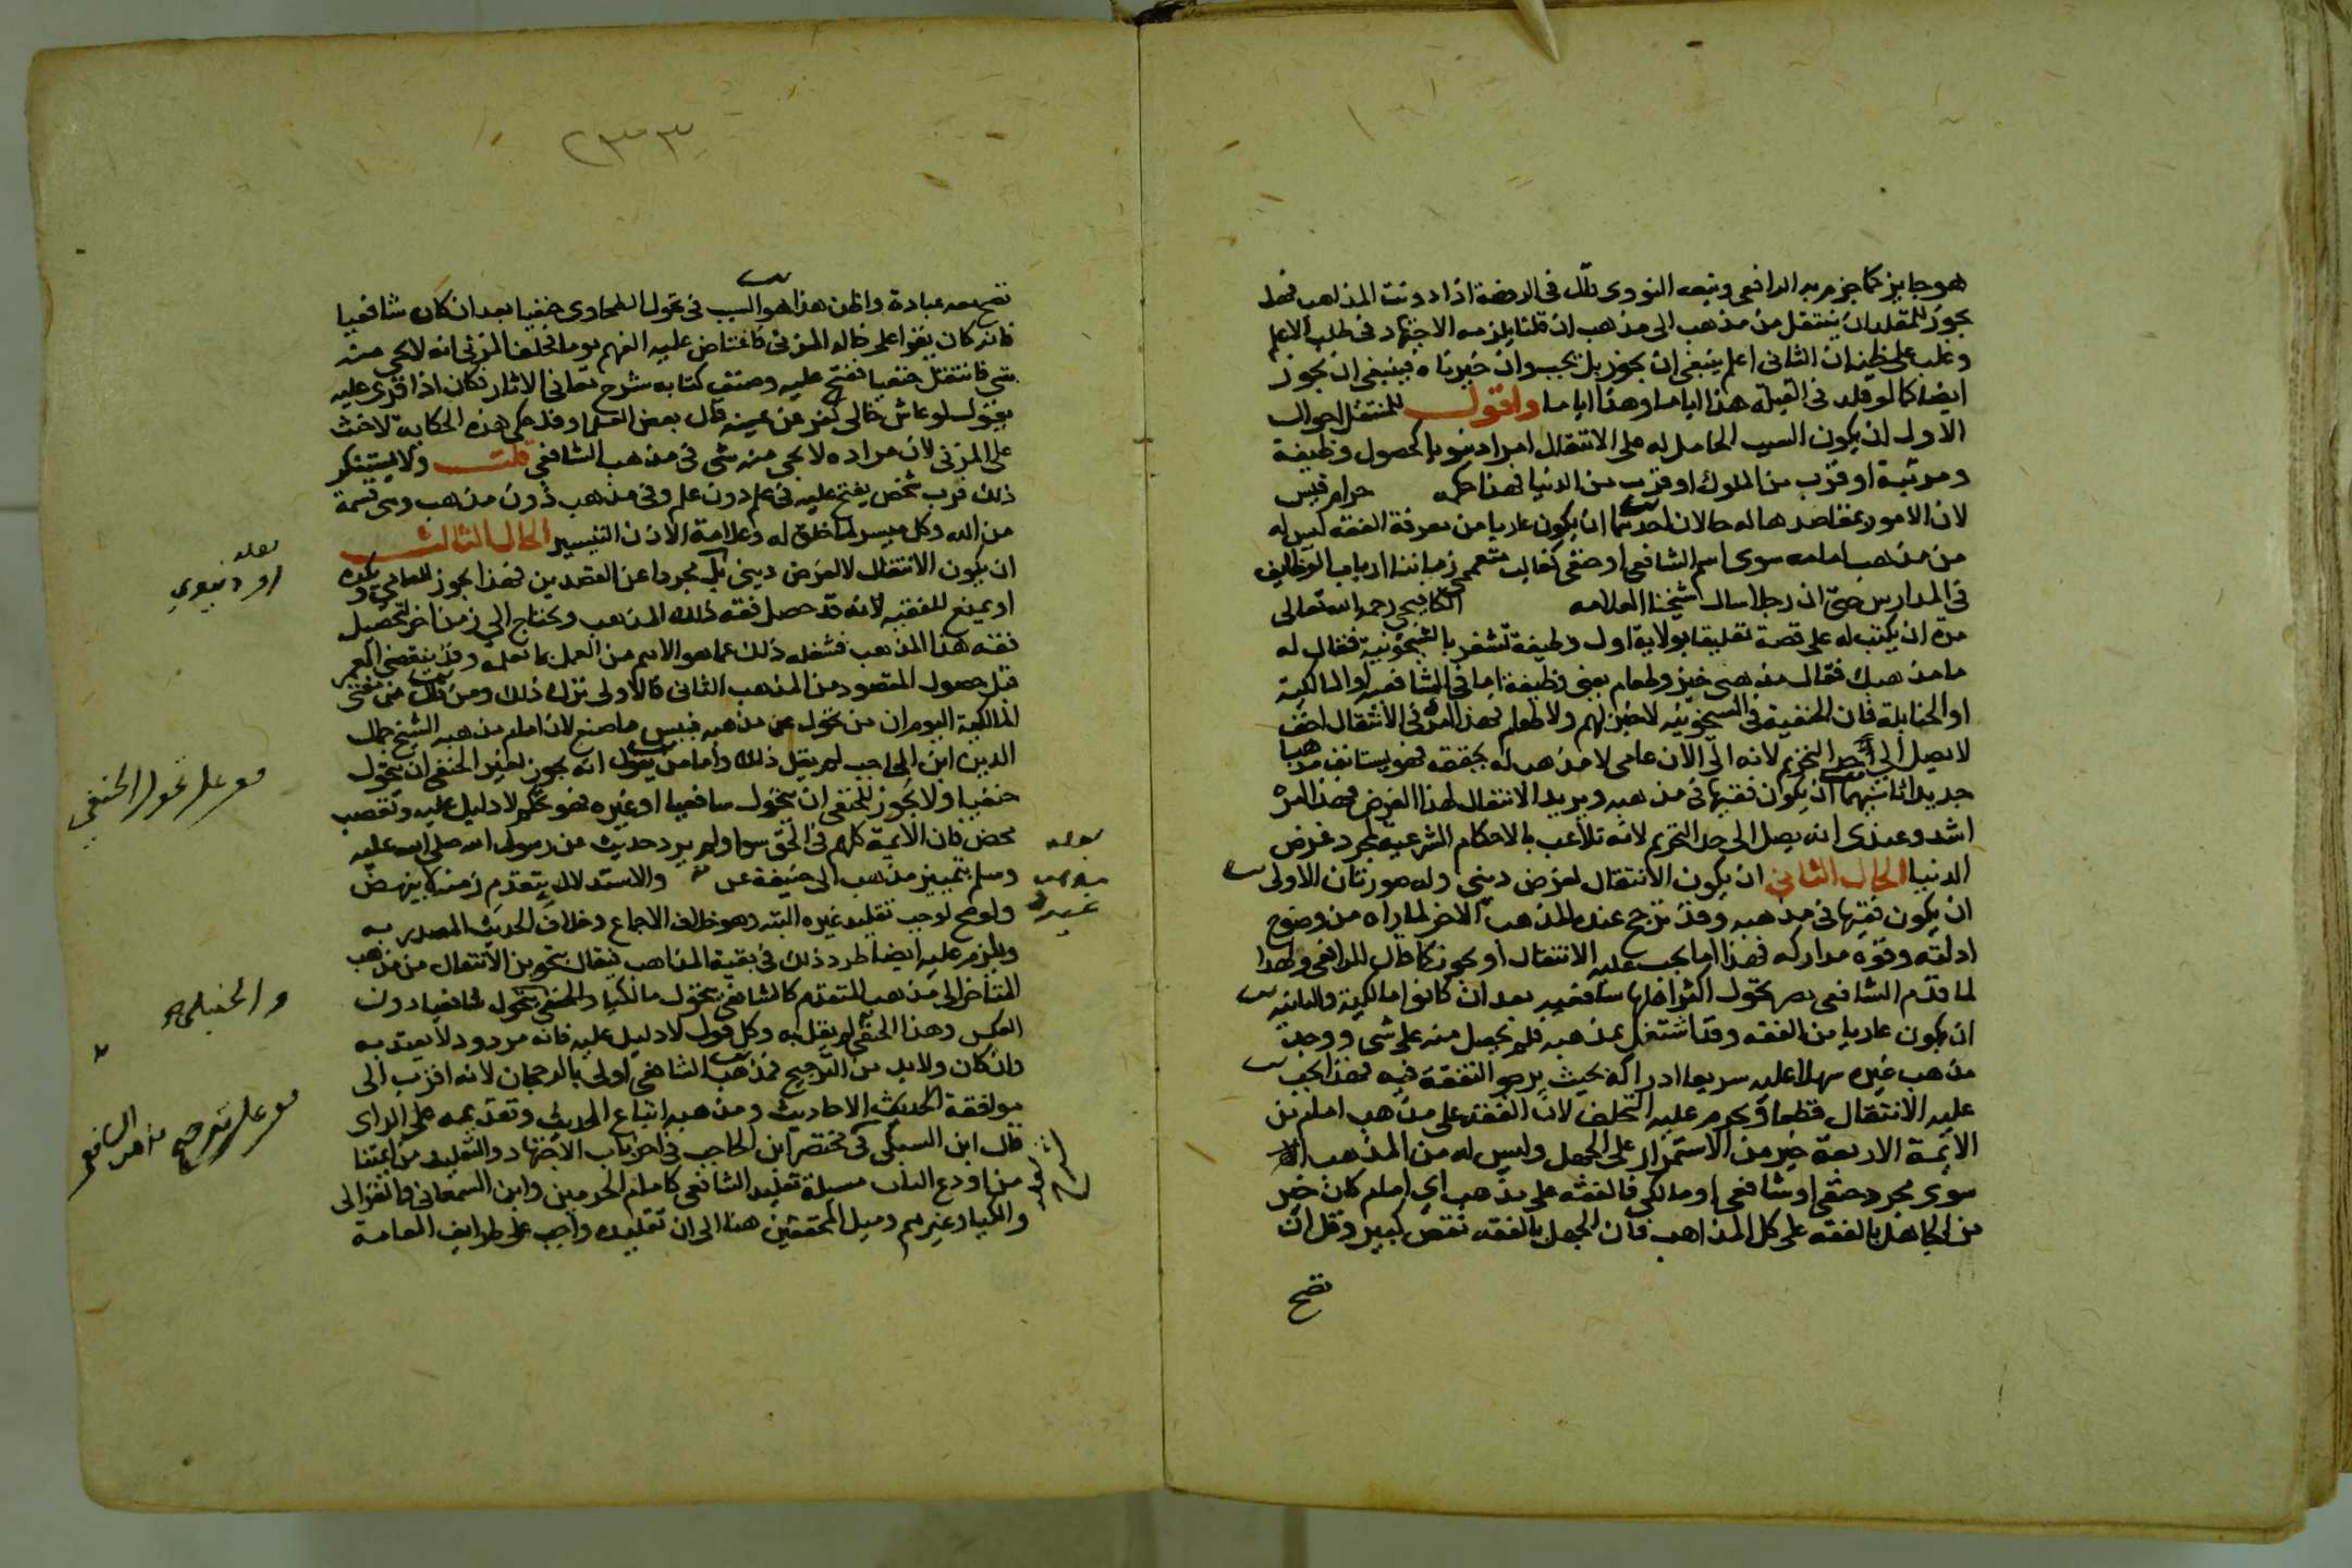 هو جايز كما جزم به الرافعي وتبعه النووي قال في الروضة اذا دونت المذاهب فهل
يجوز للمقلد ان ينتقل من مذهب الى مذهب ان قلنا يلزمه الاجتهاد في طلب الاعلم
وغلب على ظنه ان الثاني اعلم ينبغي ان يجوز بل يجب وان خيرناه فينبغي ان يجوز
ايضا كما لو قلد في القبلة هذا اياما وهذا اياما واقول للمنتقل احوال
الاول ان يكون السبب الحامل له على الانتقال امرا دنيويا كحصول وظيفة
ومرتبة او قرب من الملوك او قرب من الدنيا فهذا حكمه حرام قيس
لان الامور بمقاصدها له حالان احدهما ان يكون عاريا من معرفة الفقه ليس له
من مذهب امامه سوى اسم الشافعي او حنفي كغالب متعممي زماننا ارباب الوظايف
في المدارس حتى ان رجلا سال شيخنا العلامه الكافيجي رحمه الله تعالى
مرة ان يكتب له على قصة تعليقا بولاية اول وظيفة تشغر بالشيخونية فقال له
ما مذهبك فقال مذهبي خبز وطعام يعني وظيفة اما في الشافعية او المالكية
او الحنابلة فان الحنفية في الشيخونيه لا خبز لهم ولا طعام فهذا امره في الانتقال اخف
لا يصل الى حد التحريم لانه الى الان عامي لا مذهب له يحققه فهو يستانف مذهبا
جديدا ثانيهما ان يكون فقيها في مذهبه ويريد الانتقال لهذا الغرض فهذا امره
اشد وعندي انه يصل الى حد التحريم لانه تلاعب بالاحكام الشرعية لمجرد غرض
الدنيا الحال الثاني ان يكون الانتقال لغرض ديني وله صورتان الاولى
ان يكون فقيها في مذهبه وقد ترجح عنده المذهب الاخر لما راه من وضوح
ادلته وقوة مداركه فهذا اما يجب عليه الانتقال او يجوز كما قال الرافعي ولهذا
لما قدم الشافعي مصر تحول اكثر اهلها شافعيه بعد ان كانوا مالكية والثانيه
ان يكون عاريا من الفقه وقد اشتغل بمذهبه فلم يحصل منه على شي ووجد
مذهب غيره سهلا عليه سريعا ادراكه بحيث يرجو التفقه فيه فهذا يجب
عليه الانتقال قطعا ويحرم عليه التخلف لان الفقه على مذهب امام من
الائمة الاربعة خير من الاستمرار على الجهل وليس له من المذهب
سوى مجرد حنفي او شافعي او مالكي فالفقه على مذهب اي امام كان خير
من الجاهل بالفقه على كل المذاهب فان الجهل بالفقه نقص كبير وقل ان
تصح
٢٣٣
تصح معه عبادة واظن هذا هو السبب في تحول الطحاوي حنفيا بعد ان كان شافعيا
فانه كان يقرا على خاله المزني فاعتاص عليه الفهم يوما فحلف المزني انه لا يجي منه
شي فانتقل حنفيا ففتح عليه وصنف كتابه شرح معاني الاثار فكان اذا قرئ عليه
يقول لو عاش خالي كفر عن يمينه قال بعض العلما وقد حكى هذه الحكاية لا حنث
على المزني لان مراده لا يجي منه شي في مذهب الشافعي قلت ولا يستنكر
ذلك فرب شخص يفتح عليه في علم دون علم وفي مذهب دون مذهب وهي قسمة
من الله وكل ميسر لما خلق له وعلامة الاذن التيسير الحال الثالث
ان يكون الانتقال لا لغرض ديني بل مجردا عن القصدين فهذا يجوز للعامي ويكره
او يمنع للفقيه لانه قد حصل فقه ذلك المذهب ويحتاج الى زمن اخر لتحصيل
فقه هذا المذهب فشغله ذلك عما هو الاهم من العمل بما تعلمه وقد ينقضي العمر
قبل حصول المقصود من المذهب الثاني فالاولى ترك ذلك ومن قال من مفتى
المالكية اليوم ان من تحول عن مذهبه فبيس ما صنع لان امام مذهبه الشيخ جمال
الدين ابن الحاجب لم يقل ذلك واما من يقول انه يجوز لغير الحنفي ان يتحول
حنفيا ولا يجوز للحنفي ان يتحول شافعيا او غيره فهو تحكم لا دليل عليه وتعصب
محض فان الائمة كلهم في الحق سوا ولم يرد حديث من رسول الله صلى الله عليه
وسلم بتمييز مذهب ابي حنيفة على والاستدلال بتقدم زمنه لا ينهض
ولو صح لوجب تقليد غيره البتة وهو خلاف الاجماع وخلاف الحديث المصدر به
ويلزم عليه ايضا طرد ذلك في بقية المذاهب فيقال بتجويز الانتقال من مذهب
المتاخر الى مذهب المتقدم كالشافعي يتحول مالكيا والحنفي يتحول شافعيا دون
العكس وهذا الحنفي لم يقل به وكل قول لا دليل عليه فانه مردود لا يعتد به
وان كان ولا بد من الترجيح فمذهب الشافعي اولى بالرجحان لانه اقرب الى
موافقة الحديث الاحاديث ومذهبه اتباع الحديث وتقديمه على الراي
قال ابن السبكي في مختصر ابن الحاجب في اخر باب الاجتهاد والتقليد من ائمتنا
من اودع الباب مسيلة تقليد الشافعي كامام الحرمين وابن السمعاني والغزالي
والكيا وغيرهم وميل المحققين هنا الى ان تقليده واجب على طوايف العامة
او دنيوي
مع على تحول الحنفي
والحنبلي